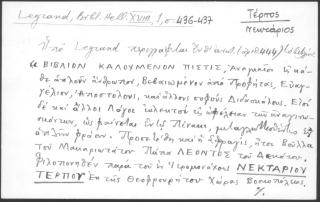 Legrand, Bibl. Hell. XVIII, 1, σ. 436-437
Τέρπος
Νεκτάριος
Ὑπὸ Legrand περιγράφεται
« ΒΙΒΛΙΟΝ ΚΑΛΟΥΜΕΝΟΝ ΠΙΣΤΙΣ, Ἀναγκαῖον εἰς κά-
θε ἁπλοῦν ἄνθρωπον, Βεβαιωμένον ἀπὸ Προφήτας, Εὐαγ-
γέλιον, Ἀποστόλους, καὶ ἄλλους σοφοὺς Διδασκάλους.
δὲ καὶ ἄλλοι Λόγοι εἰς ὠφέλειαν τῶν ἀναγινω-
σκόντων, ὡς φαίνεται ἐν τῷ Πίνακι,
ἁπλῆν φράσιν. Προσετέθη καὶ ἡ ἤτοι Βούλλα
τοῦ Μακαριωτάτου Πάπα ΛΕΟΝΤΟΣ τοῦ Δεκάτου.
Φιλοπονηθὲν παρὰ τοῦ ἐν Ἱερομονάχοις ΝΕΚΤΑΡΙΟΥ
ΤΕΡΠΟΥ Ἐκ τῆς Θεοφρουρήτου Χώρας Βοσκοπόλεως.